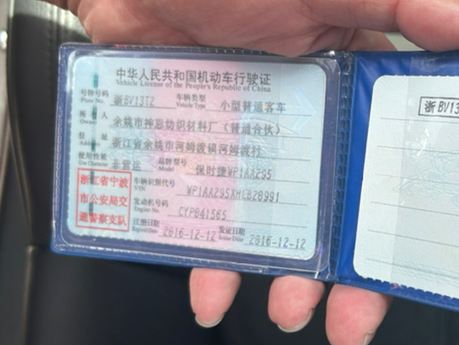 中华人民共和国机动车行驶证
Vehicle License of the People's Republic of China
号牌号码 浙BV13T2 车辆类型 小型普通客车
Plate No. Vehicle Type
所有人 余姚市神恩纺织材料厂(普通合伙)
Owner
住址 浙江省余姚市河姆渡镇河姆渡村
Address
使用性质 非营运 品牌型号 保时捷WP1AAZ95
Use Character Model
浙江省宁波
市公安局交
通警察支队
车辆识别代号
VIN
发动机号码 CYP841565
Engine No.
注册日期 2016-12-12 发证日期 2016-12-12
Register Date Issue Date
浙BV13